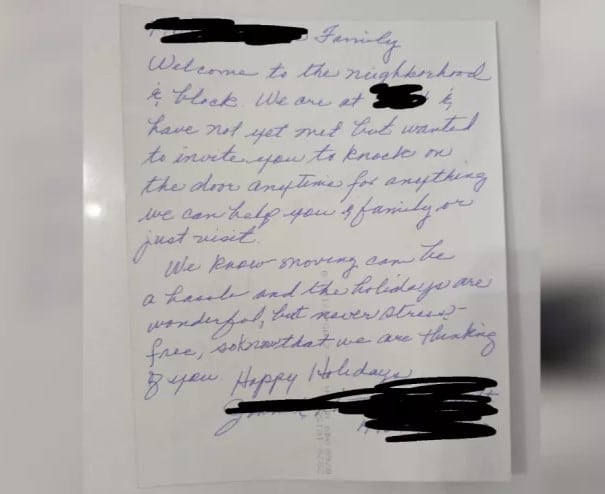 Family
Welcome to the neighborhood
& block. We are at &
have not yet met but wanted
to invite you to knock on
the door anytime for anything
we can help you & family or
just visit.
We know moving can be
a hassle and the holidays are
wonderful, but never stress-
free, so know that we are thinking
of you. Happy Holidays